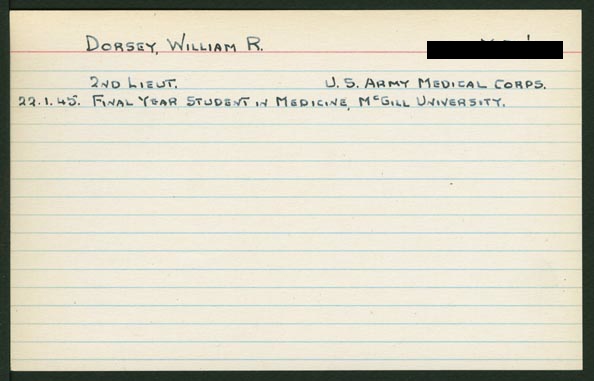 DORSEY, WILLIAM R.
2ND LIEUT. U.S. ARMY MEDICAL CORPS.
22.1.45. FINAL YEAR STUDENT IN MEDICINE, McGILL UNIVERSITY.